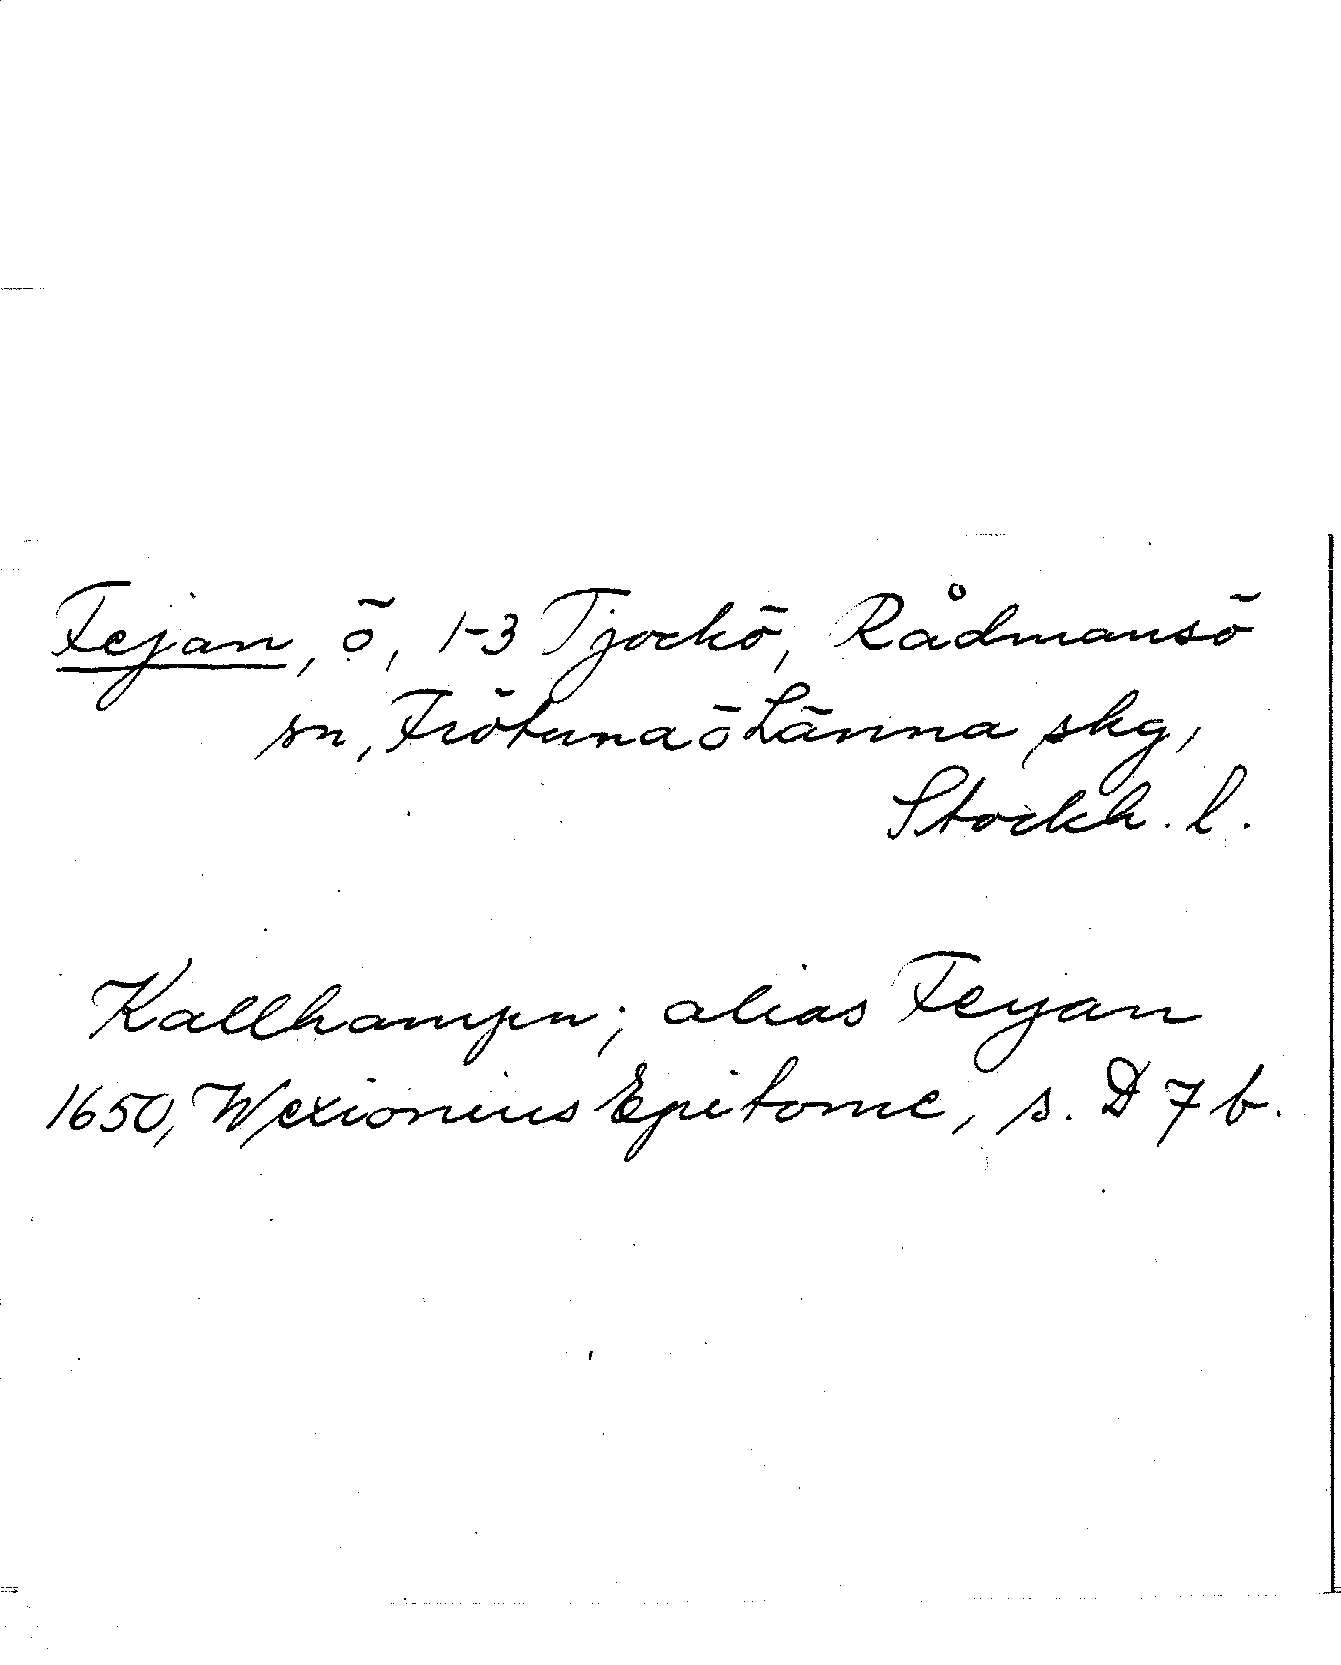 Fejan, ö, 1-3 Tjockö, Rådmansö
sn, Frötuna o Länna skg,
Stockh. l.
Kallhampn; alias Feyan
1650, Wexionius Epitome, s. D 7 b.